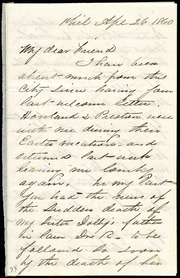 Phil Apl 26 1860
My dear Friend
I have been
absent much from this
City since having your
last welcome letter.
Howland & Preston were
with me during their
Easter vacation, and
returned last week
leaving me lonely
again. In my last
you had the news of
the sudden death of
my sister Dolly's father
in law Dr P. to be
followed so soon
by the death of her